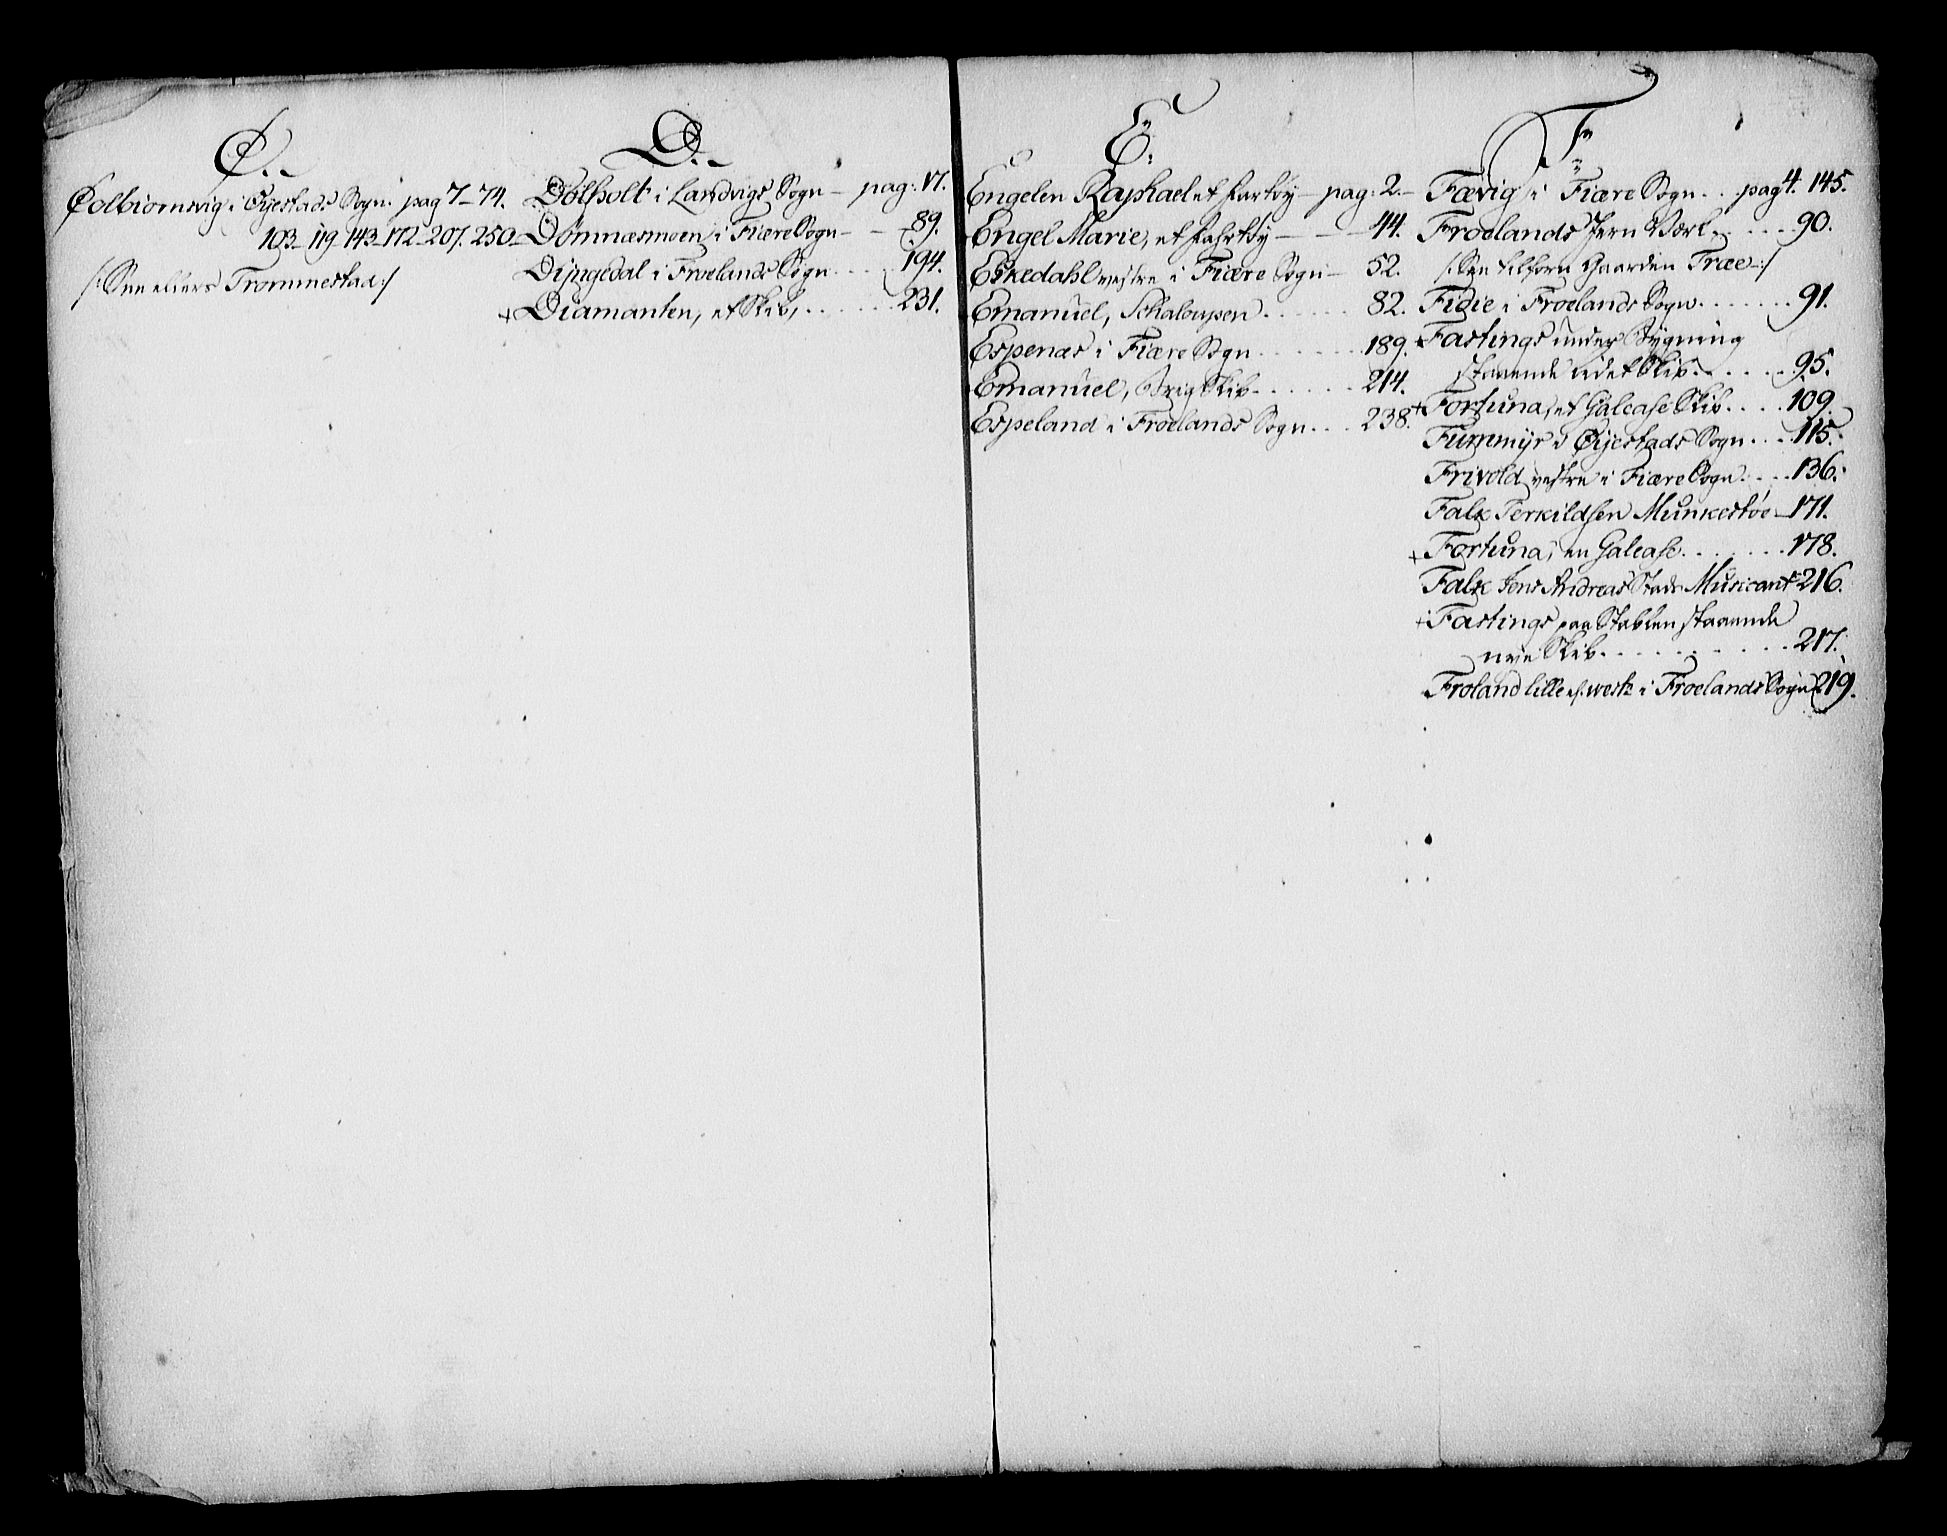 C.
Colbiornsvig i Øyestads Sogn. pag 7-74.
103-119-143-172-207-250
/: See ellers Trommestad :/
D.
Dolholt i Landvigs Sogn - pag: 17.
Dømnæsmoen i Fiære Sogn - - 89.
Dijngedal i Froelands Sogn . . . . 194.
+ Diamanten, et Skib, . . . . . . 231.
E:
Engelen Raphael et Fartöy - pag: 2.
Engel Marie, et Fahrtöy - - - 44.
Eskedahl vestre i Fiære Sogn - 52.
Emanuel, Schaloupen . . . . . . 82.
Espenæs i Fiære Sogn . . . . . . 189.
Emanuel, Brig Skib . . . . . . 214.
Espeland i Froelands Sogn . . . 238.
F
Fævig i Fiære Sogn . . pag 4. 145.
Froelands Jern Værk . . . . . 90.
/: See tilforn Gaarden Træe :/
Fidie i Froelands Sogn . . . . . . . 91.
+ Fastings under Bygning
staaende Skib . . . . . . 95.
+ Fortuna, et Galease Skib . . . . 109.
Furremyr i Øijestads Sogn . . . . 115.
Frivold vestre i Fiære Sogn . . . . 136.
Falk Terkildsen Munkestøe - 171.
+ Fortuna, en Galease . . . . . . . 178.
Falk Jens Andreas Stads Musicant 216.
+ Fastings paa Stablen staaende
nye Skib . . . . . . . . . . 217.
Froland lille i Froelands Sogn 219.